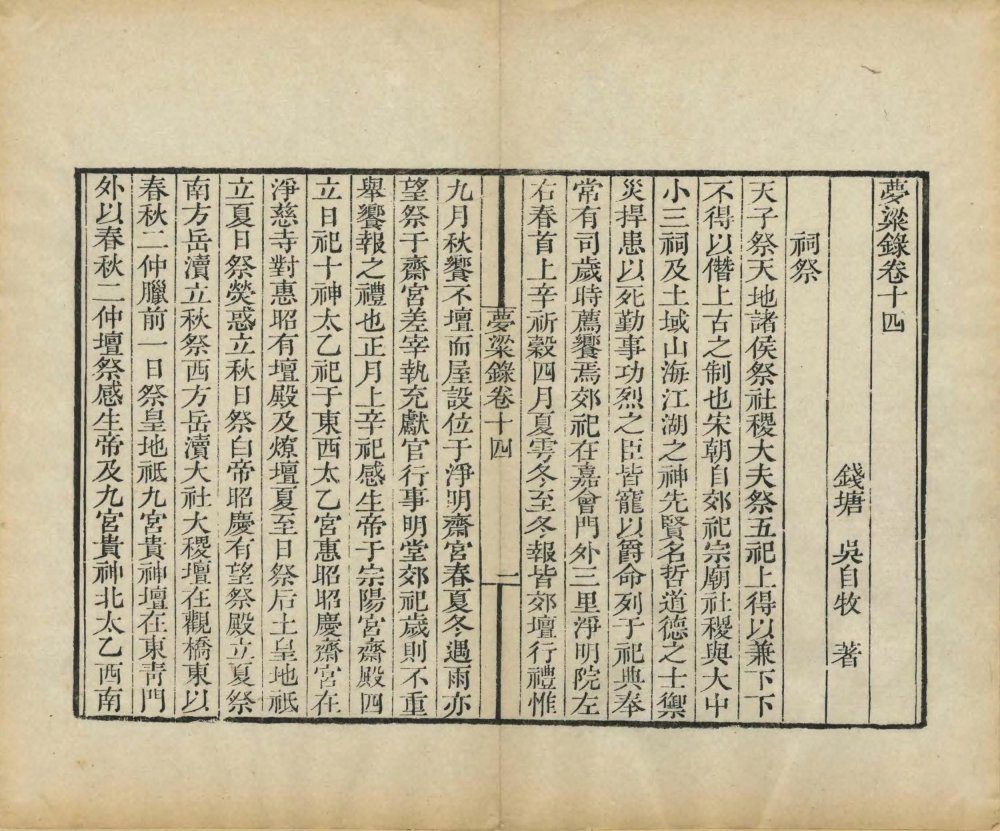 夢粱錄卷十四
錢塘 吳自牧 著
祠祭
天子祭天地諸侯祭社稷大夫祭五祀上得以兼下下
不得以僭上古之制也宋朝自郊祀宗廟社稷與大中
小三祠及土域山海江湖之神先賢名哲道德之士禦
災捍患以死勤事功烈之臣皆寵以爵命列于祀典奉
常有司歲時薦饗焉郊祀在嘉會門外三里淨明院左
右春首上辛祈穀四月夏雩冬至冬報皆郊壇行禮惟
夢粱錄卷十四 一
九月秋饗不壇而屋設位于淨明齋宮春夏冬遇雨亦
望祭于齋宮差宰執充獻官行事明堂郊祀歲則不重
舉饗報之禮也正月上辛祀感生帝于宗陽宮齋殿四
立日祀十神太乙祀于東西太乙宮惠昭昭慶齋宮在
淨慈寺對惠昭有壇殿及燎壇夏至日祭后土皇地祇
立夏日祭熒惑立秋日祭白帝昭慶有望祭殿立夏祭
南方岳瀆立秋祭西方岳瀆大社大稷壇在觀橋東以
春秋二仲臘前一日祭皇地祇九宮貴神壇在東靑門
外以春秋二仲壇祭感生帝及九宮貴神北太乙西南